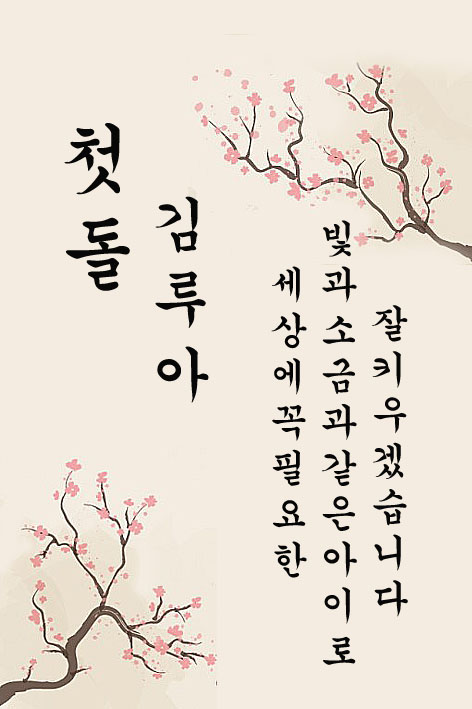 첫돌
김루아
세상에꼭필요한
빛과소금과같은아이로
잘키우겠습니다